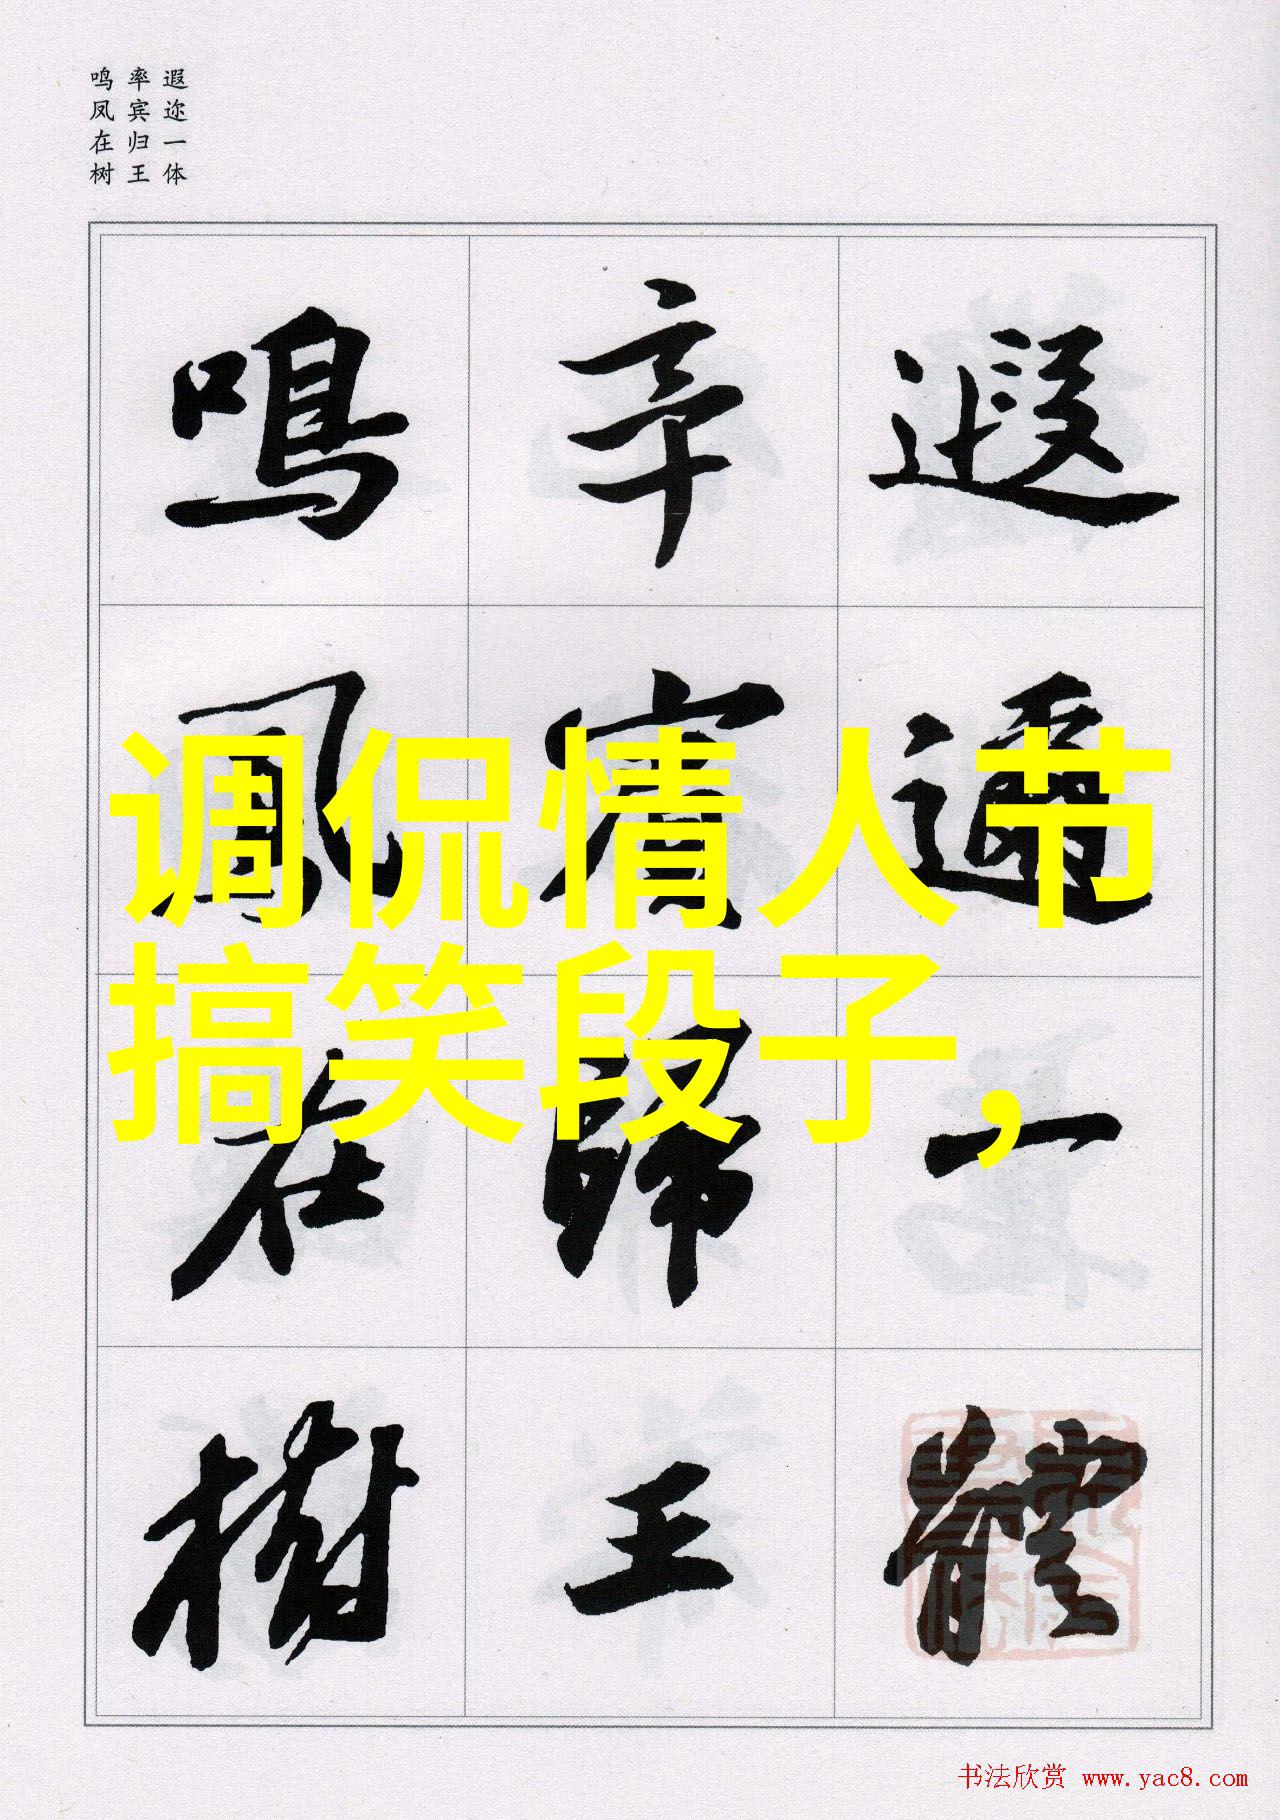 遐迩一体
率宾归王
鸣凤在树
遐邇一體
率賓歸王
鳴鳳在樹
调侃情人节
搞笑段子，
书法欣赏 www.yac8.com